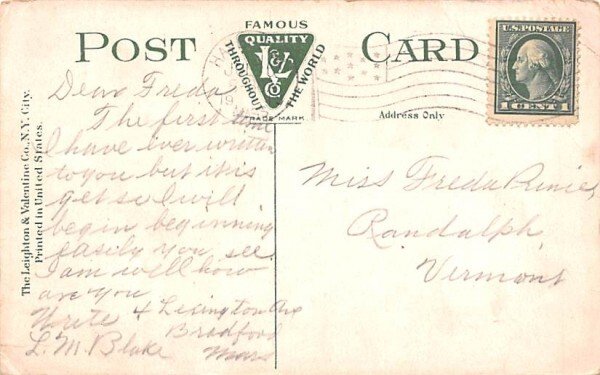 POST CARD
FAMOUS
QUALITY
THROUGHOUT THE WORLD
L & V Co
TRADE MARK
U.S. POSTAGE
1 CENT 1
Address Only
The Leighton & Valentine Co., N.Y. City.
Printed in United States.
Dear Freda
The first time
I have ever written
to you but this
get so I will
begin beginning
easily you see
I am well how
are you
Write 4 Lexington Ave
L. M. Blake Bradford
Mass
Miss Freda
Randolph
Vermont